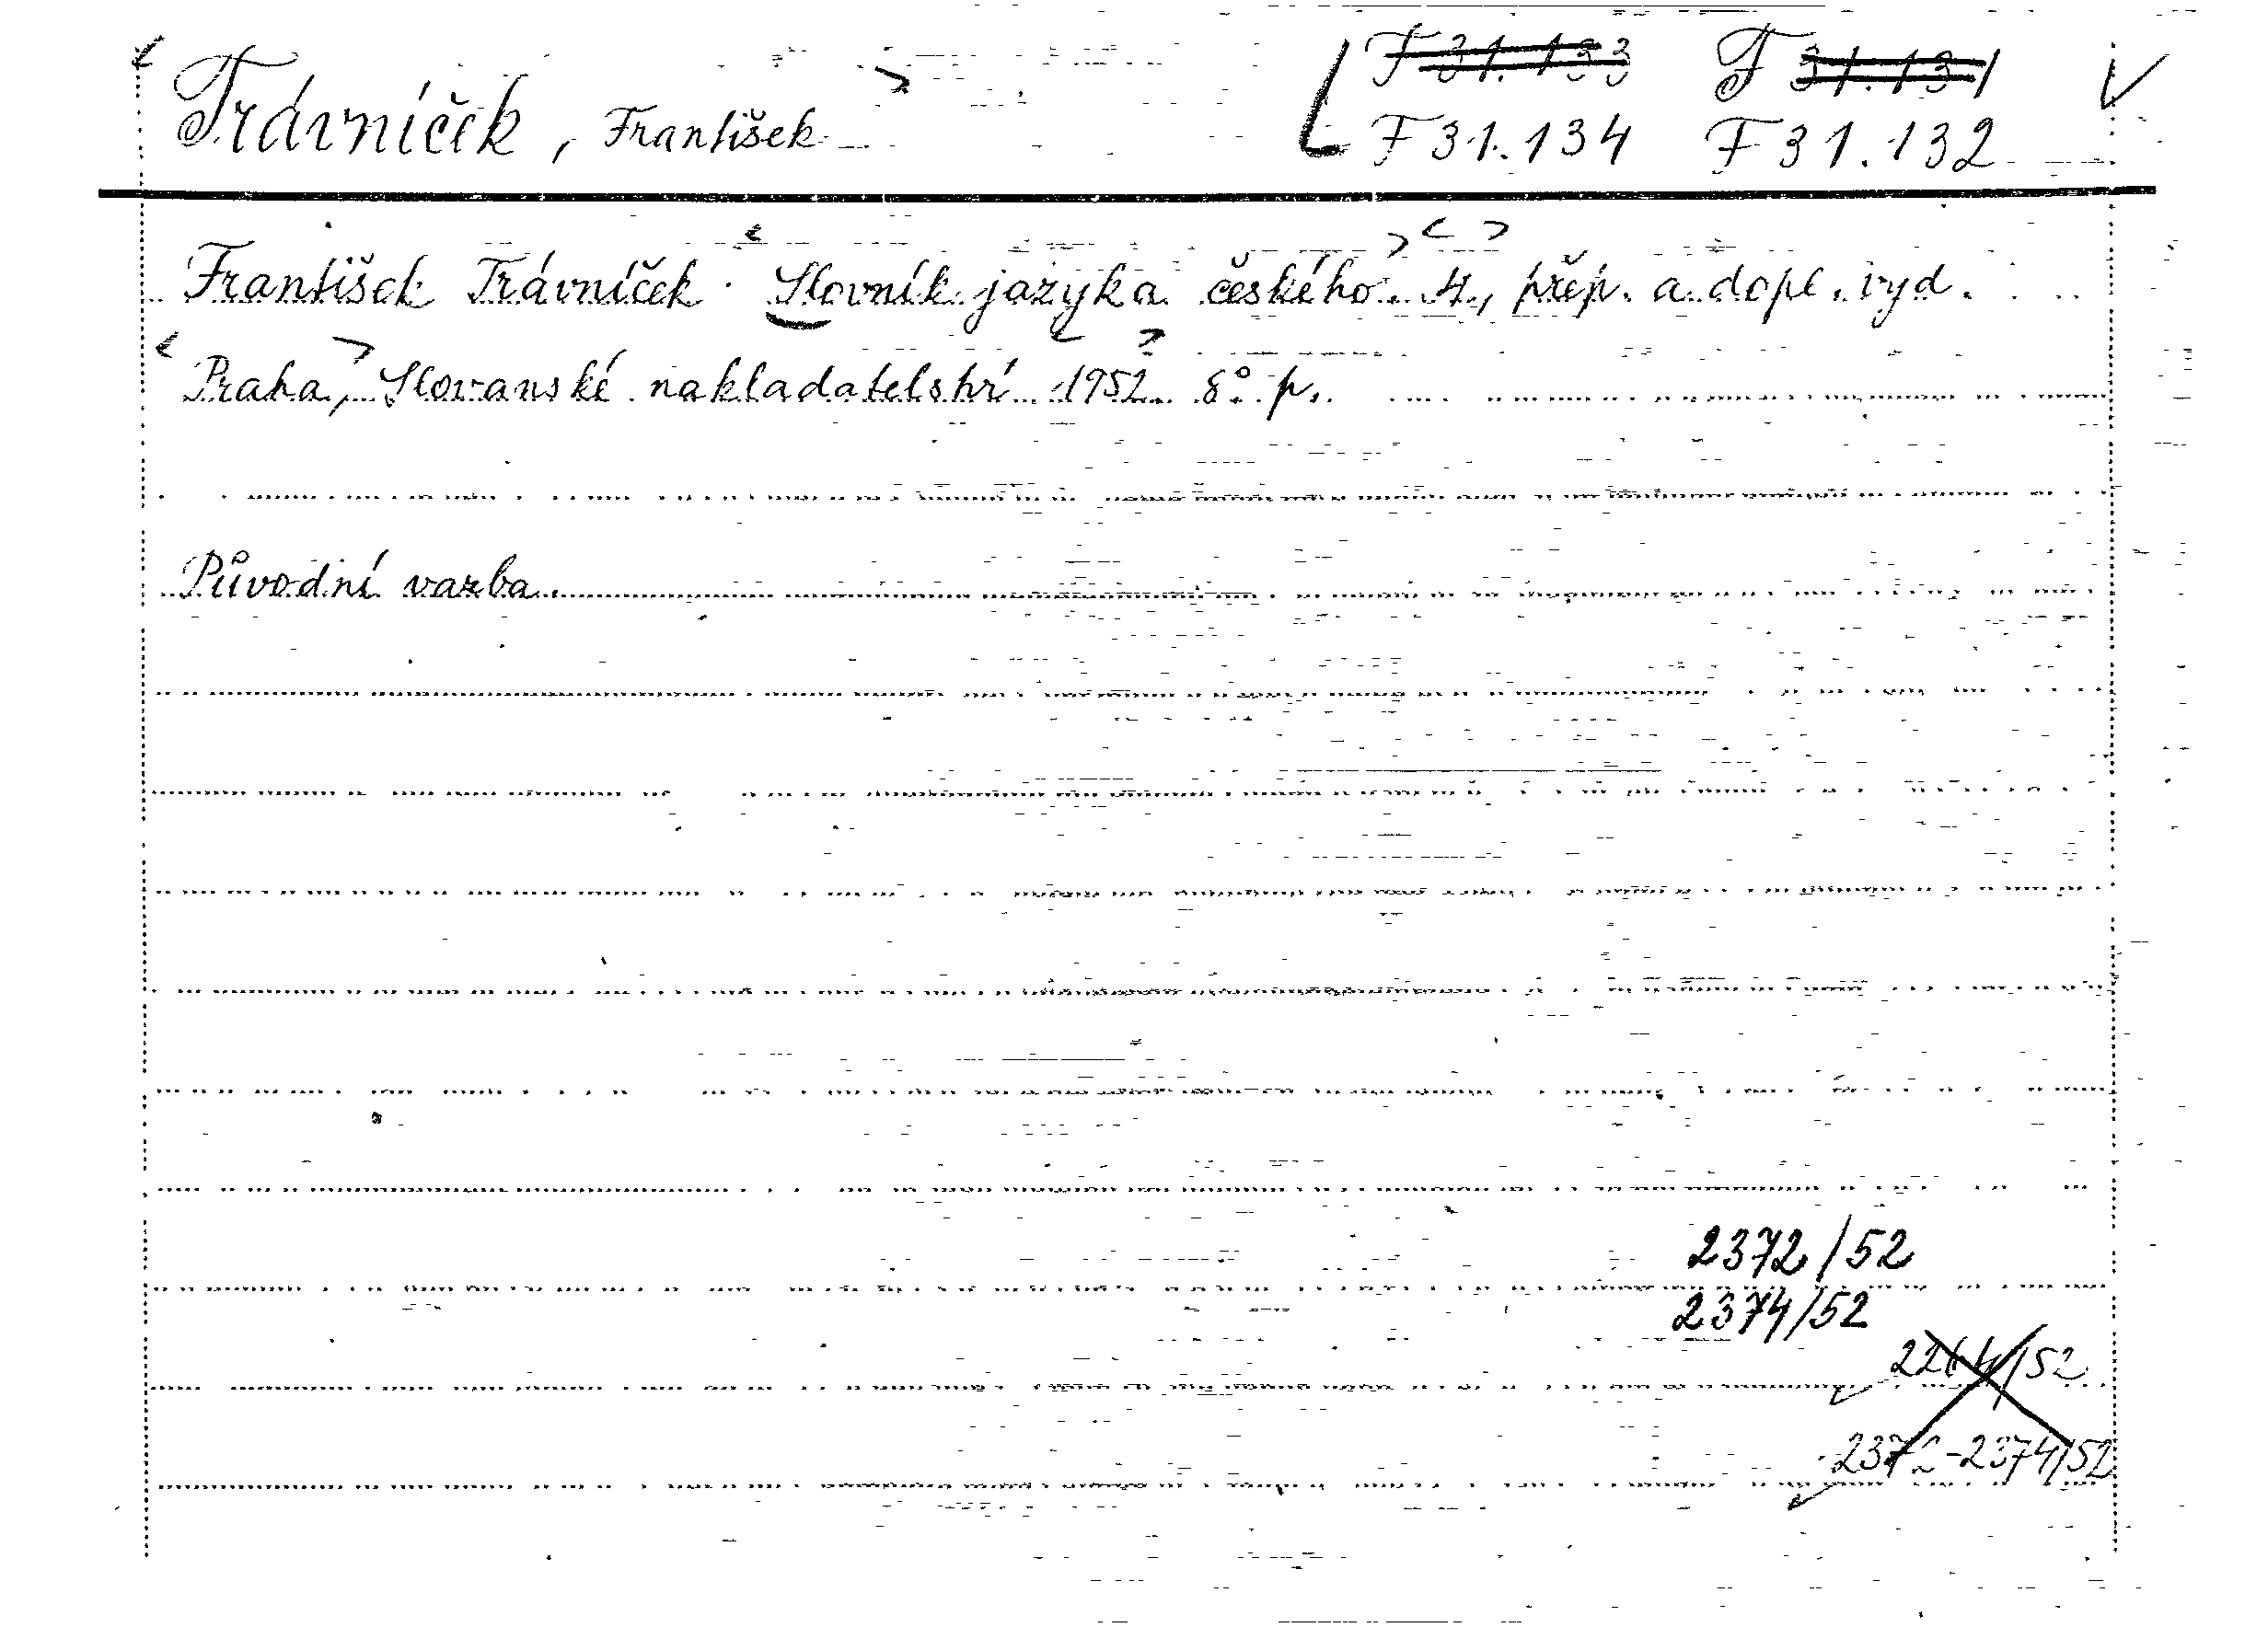 F 31.133 F 31.131
Trávníček, František F 31.134 F 31.132
František Trávníček : Slovník jazyka českého. 4., přep. a dopl. vyd.
Praha, Slovanské nakladatelství 1952. 8° p.
Původní vazba.
2372/52
2374/52
/52
2372-2374/52